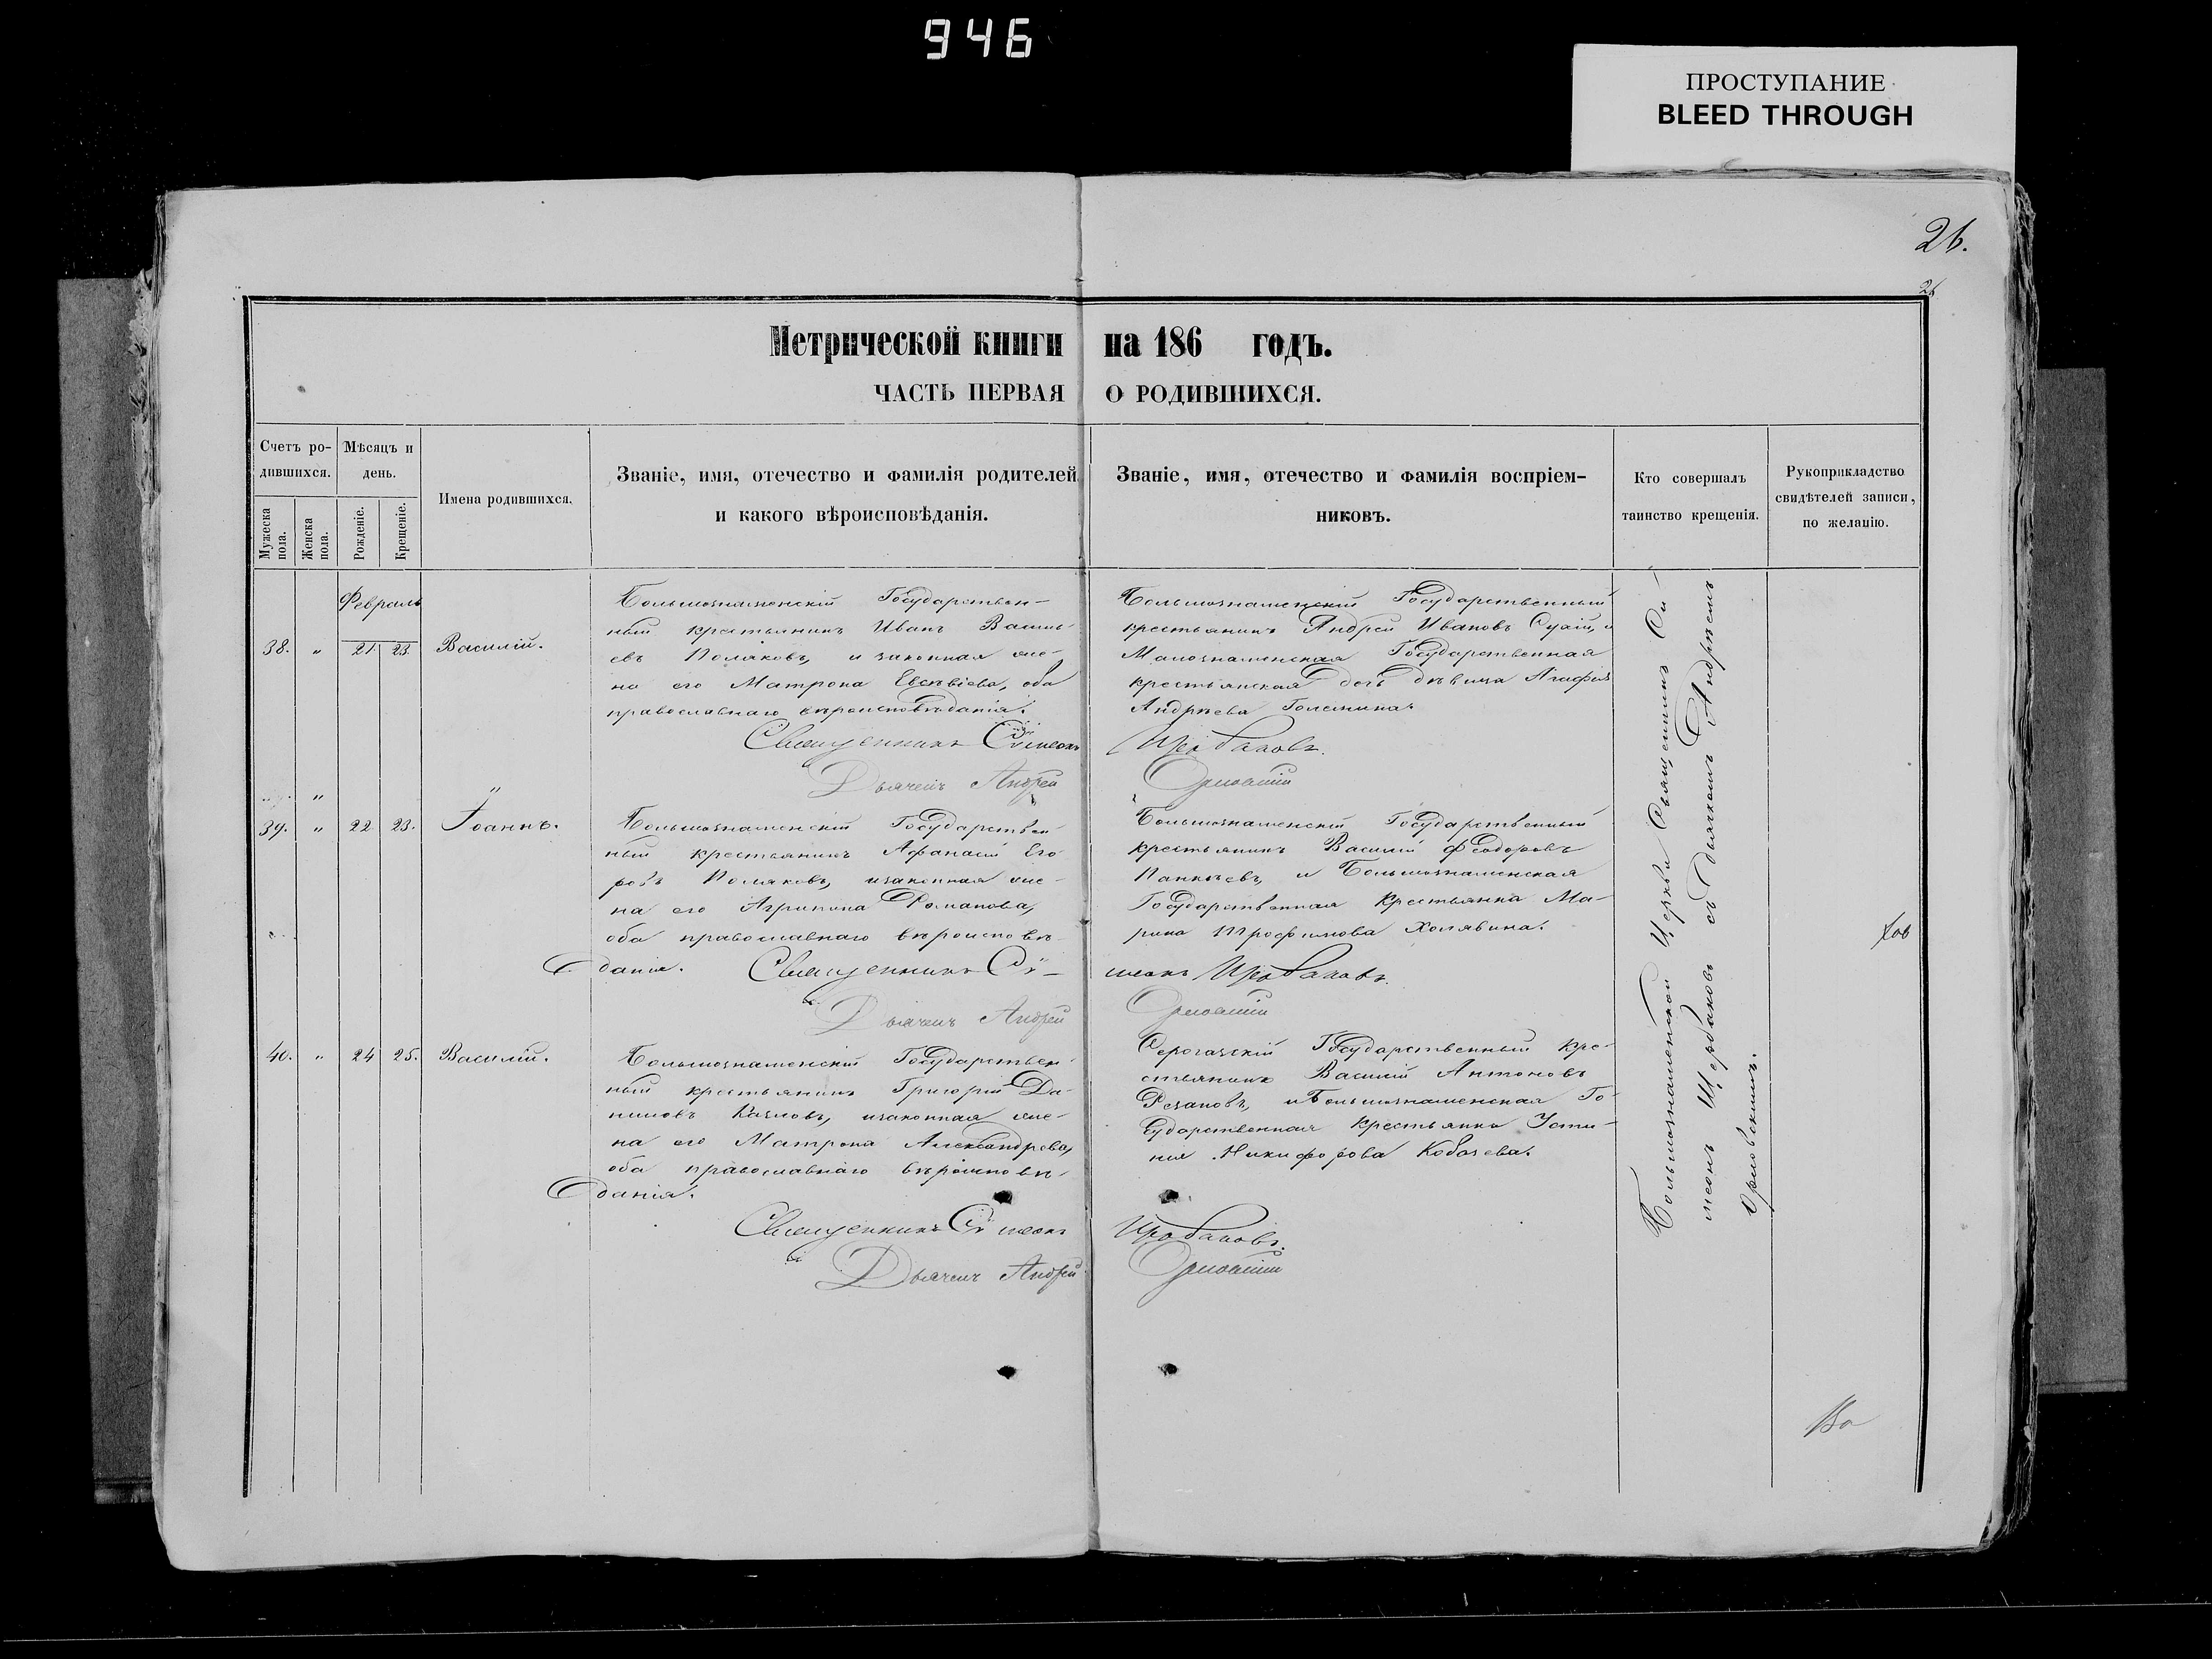 946
ПРОСТУПАНИЕ
BLEED THROUGH
26.
26
Метрической книги на 186 годъ.
ЧАСТЬ ПЕРВАЯ О РОДИВШИХСЯ.
Счетъ ро-
дившихся.
Мужеска
пола.
Женска
пола.
Мѣсяцъ и
день.
Рожденіе.
Крещеніе.
Имена родившихся.
Званіе, имя, отечество и фамилія родителей
и какого вѣроисповѣданія.
Званіе, имя, отечество и фамилія воспріем-
никовъ.
Кто совершалъ
таинство крещенія.
Рукоприкладство
свидѣтелей записи,
по желанію.
Февраль
38. " 21. 23. Василій.
Большознаменскій Государствен-
ный крестьянинъ Иванъ Василь-
евъ Поляковъ, и законная же-
на его Матрона Евсевіева, оба
православнаго вѣроисповѣданія.
Священникъ Сѵмеонъ
Дьячекъ Андрей
Большознаменскій Государственный
крестьянинъ Андрей Ивановъ и
Малознаменская Государственная
крестьянская дочь дѣвица Агафія
Андреева
Щербаковъ.
Орловскій
39. " 22 23. Іоаннъ.
Большознаменскій Государствен-
ный крестьянинъ Афанасій Его-
ровъ Поляковъ, изаконная же-
на его Агрипина Романова,
оба православнаго вѣроисповѣ-
данія. Священникъ Сѵ-
Дьячекъ Андрей
Большознаменскій Государственный
крестьянинъ Василій Феодоровъ
и Большознаменская
Государственная крестьянка Ма-
рина Трофимова Холявина.
меонъ Щербаковъ.
Орловскій
40. " 24 25. Василій.
Большознаменскій Государствен-
ный крестьянинъ Григорій Да-
ниловъ Козловъ, изаконная же-
на его Матрона Александрова,
оба православнаго вѣроисповѣ-
данія.
Священникъ Сѵмеонъ
Дьячекъ Андрей
Государственный кре-
стьянинъ Василій Антоновъ
Резановъ, иБольшознаменская Го-
сударственная крестьянка Усти-
нія Никифорова
Щербаковъ.
Орловскій
Большознаменской Церкви Священникъ Си-
меонъ Щербаковъ съ дьячкомъ Андреемъ
Орловскимъ.